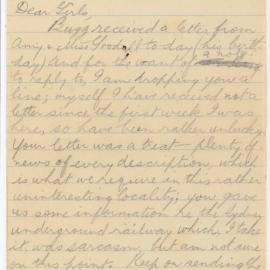 Dear Girls,
Bugg received a letter from
Amy & Miss Goodall to day (his birth
day) And for the want of a nose
to reply to, I am dropping you a
line; myself I have received not a
letter since the first week I was
here, so have been rather unlucky.
Your letter was a treat – plenty of
news of every description, which
is what we require in this rather
uninteresting locality; you gave
us some information re the Sydney
underground railway which I take
it was sarcasm, but am not sure
on this point. Keep on sending the